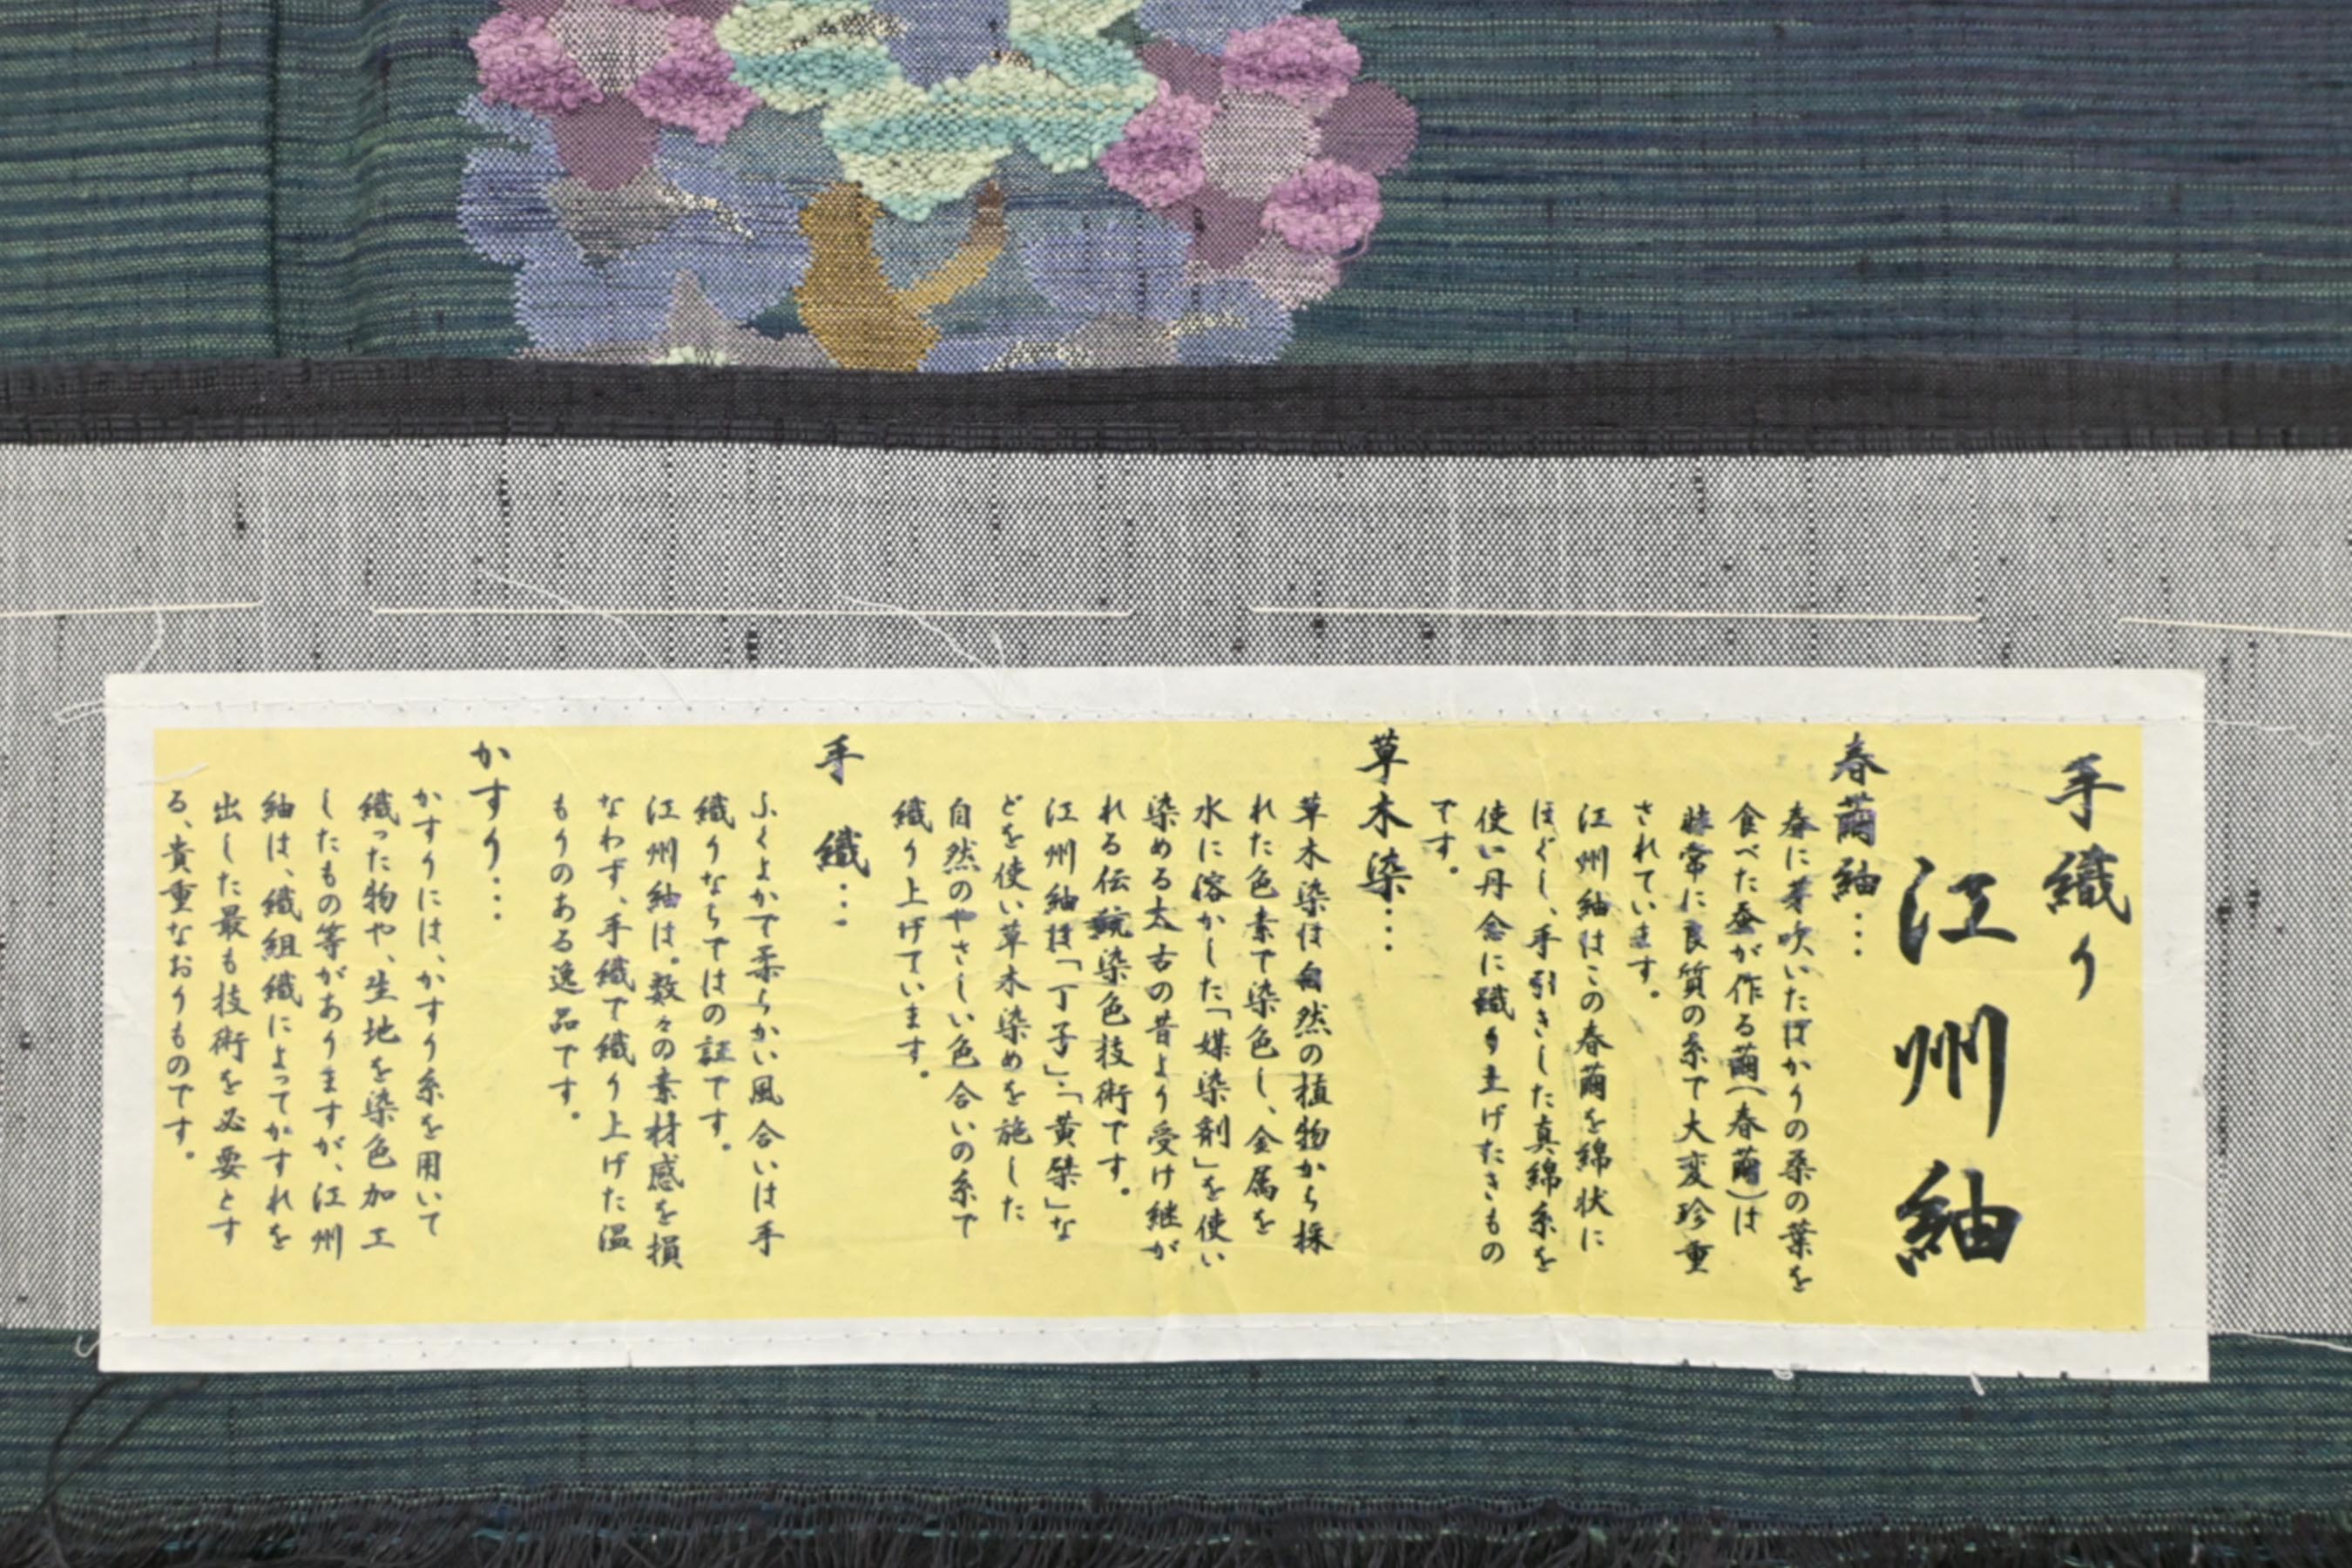 手織り
江州紬
春繭紬…
春に芽吹いたばかりの桑の葉を
食べた蚕が作る繭(春繭)は
非常に良質の糸で大変珍重
されています。
江州紬はこの春繭を綿状に
ほぐし、手引きした真綿糸を
使い丹念に織り上げたきもの
です。
草木染…
草木染は自然の植物から採
れた色素で染色し、金属を
水に溶かした「媒染剤」を使い
染める太古の昔より受け継が
れる伝統染色技術です。
江州紬は「丁子」・「黄檗」な
どを使い草木染めを施した
自然のやさしい色合いの糸で
織り上げています。
手織…
ふくよかで柔らかい風合いは手
織りならではの証です。
江州紬は。数々の素材感を損
なわず、手織で織り上げた温
もりのある逸品です。
かすり…
かすりには、かすり糸を用いて
織った物や、生地を染色加工
したもの等がありますが、江州
紬は、織組織によってかすれを
出した最も技術を必要とす
る、貴重なおりものです。